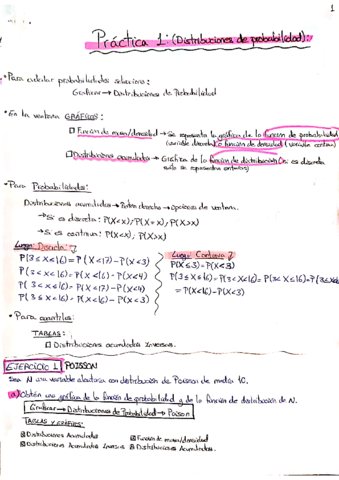 1
Práctica 1: (Distribuciones de probabilidad):
• Para calcular probabilidades selecciono:
Graficar → Distribuciones de Probabilidad
• En la ventana GRÁFICOS:
□ Función de masa/densidad → Se representa la gráfica de la función de probabilidad
(variable discreta) o función de densidad (variable continua)
□ Distribuciones acumuladas → Gráfica de la función de distribución
• Para Probabilidades:
Distribuciones acumuladas → Botón derecho → Opciones de ventana.
→ Si es discreta: P(X<x); P(X=x); P(X>x)
→ Si es continua: P(X<x); P(X>x)
Luego: Discreta:
P(3≤X≤16) = P(X<17) - P(X<3)
P(3<X<16) = P(X<16) - P(X<4)
P(3<X≤16) = P(X<17) - P(X<4)
P(3≤X<16) = P(X<16) - P(X<3)
Luego: Continua
P(X≤3) = P(X<3)
P(3≤X≤16) = P(3<X<16) = P(3<X≤16) = P(3≤X<16)
= P(X<16) - P(X<3)
• Para cuantiles:
TABLAS:
□ Distribuciones acumuladas Inversas.
EJERCICIO 1 POISSON
Sea N una variable aleatoria con distribución de Poisson de media 10.
a) Obtén una gráfica de la función de probabilidad y de la función de distribución de N.
Graficar → Distribuciones de Probabilidad → Poisson
TABLAS Y GRÁFICOS:
Distribuciones Acumuladas
Función de masa/densidad
Distribuciones Acumuladas Inversas
Distribuciones Acumuladas.